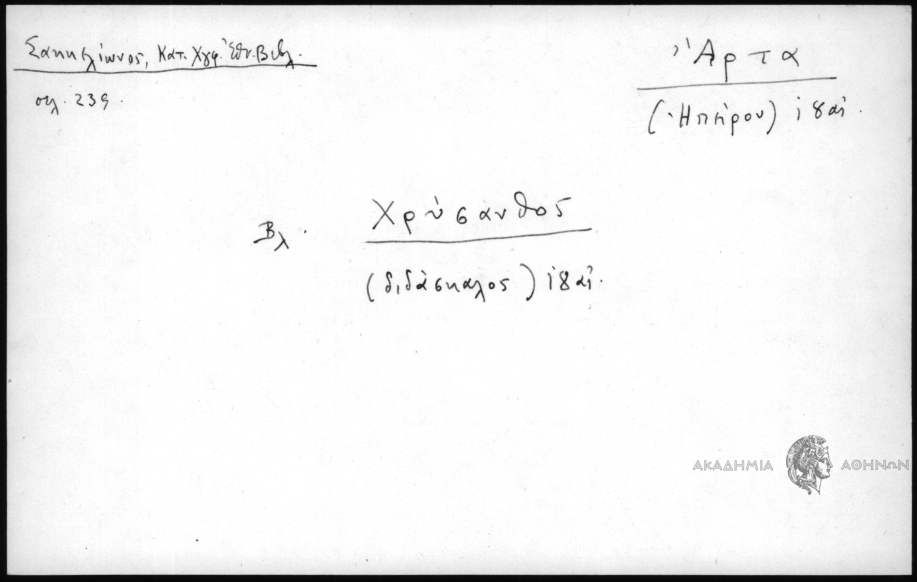 Σακκελίωνος, Κατ. Χγφ. Ἐθν. Βιβλ.
σελ. 239.
Ἄρτα
(Ἠπείρου) ιϛ αἰ.
Βλ. Χρύσανθος
(διδάσκαλος) ιϛ αἰ.
ΑΚΑΔΗΜΙΑ ΑΘΗΝΩΝ